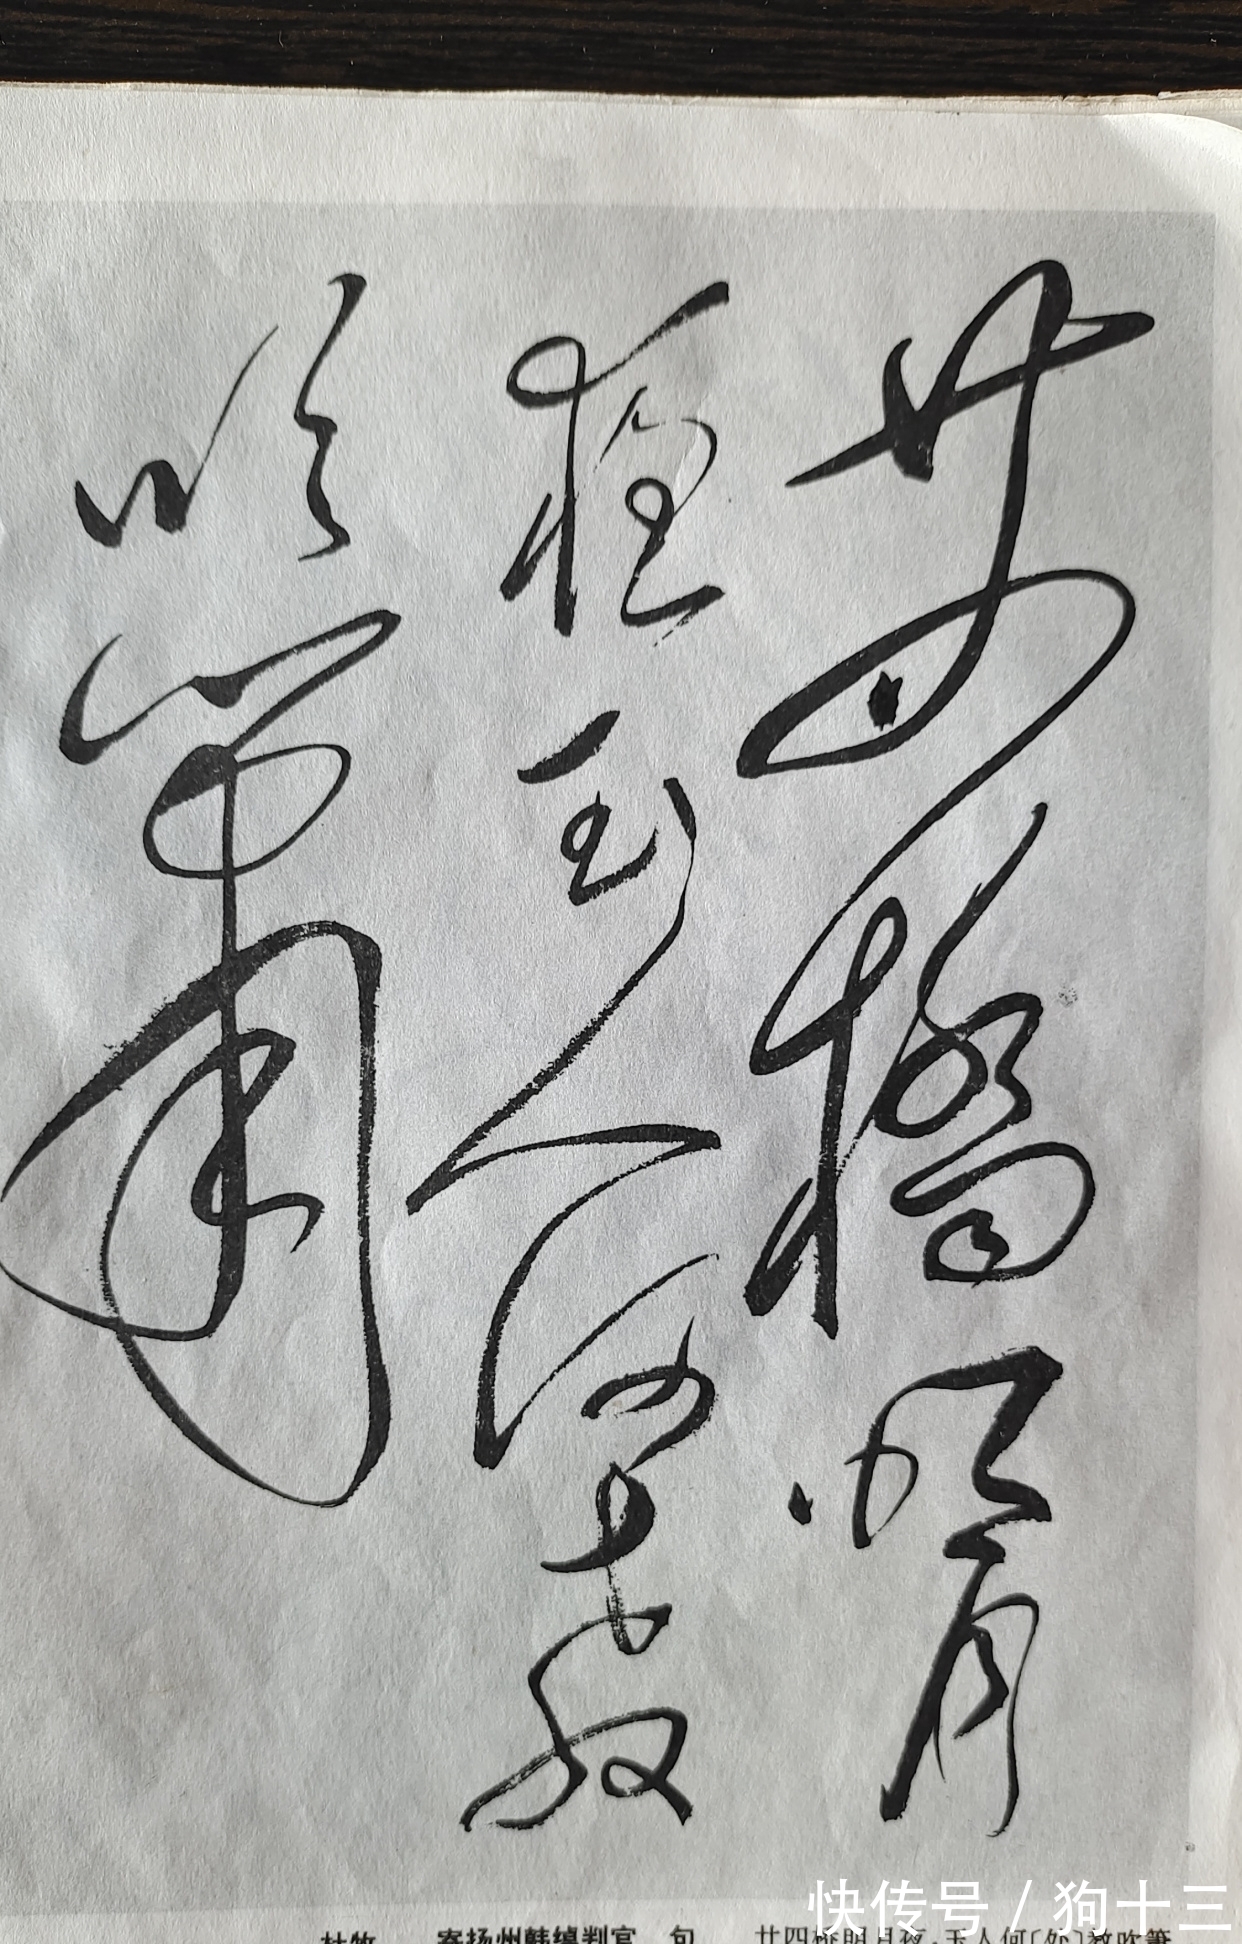 廿四橋明月
夜玉人何教
吹簫
杜牧 寄扬州韩绰判官 句 廿四桥明月夜,玉人何〔处〕教吹箫
快传号 / 狗十三